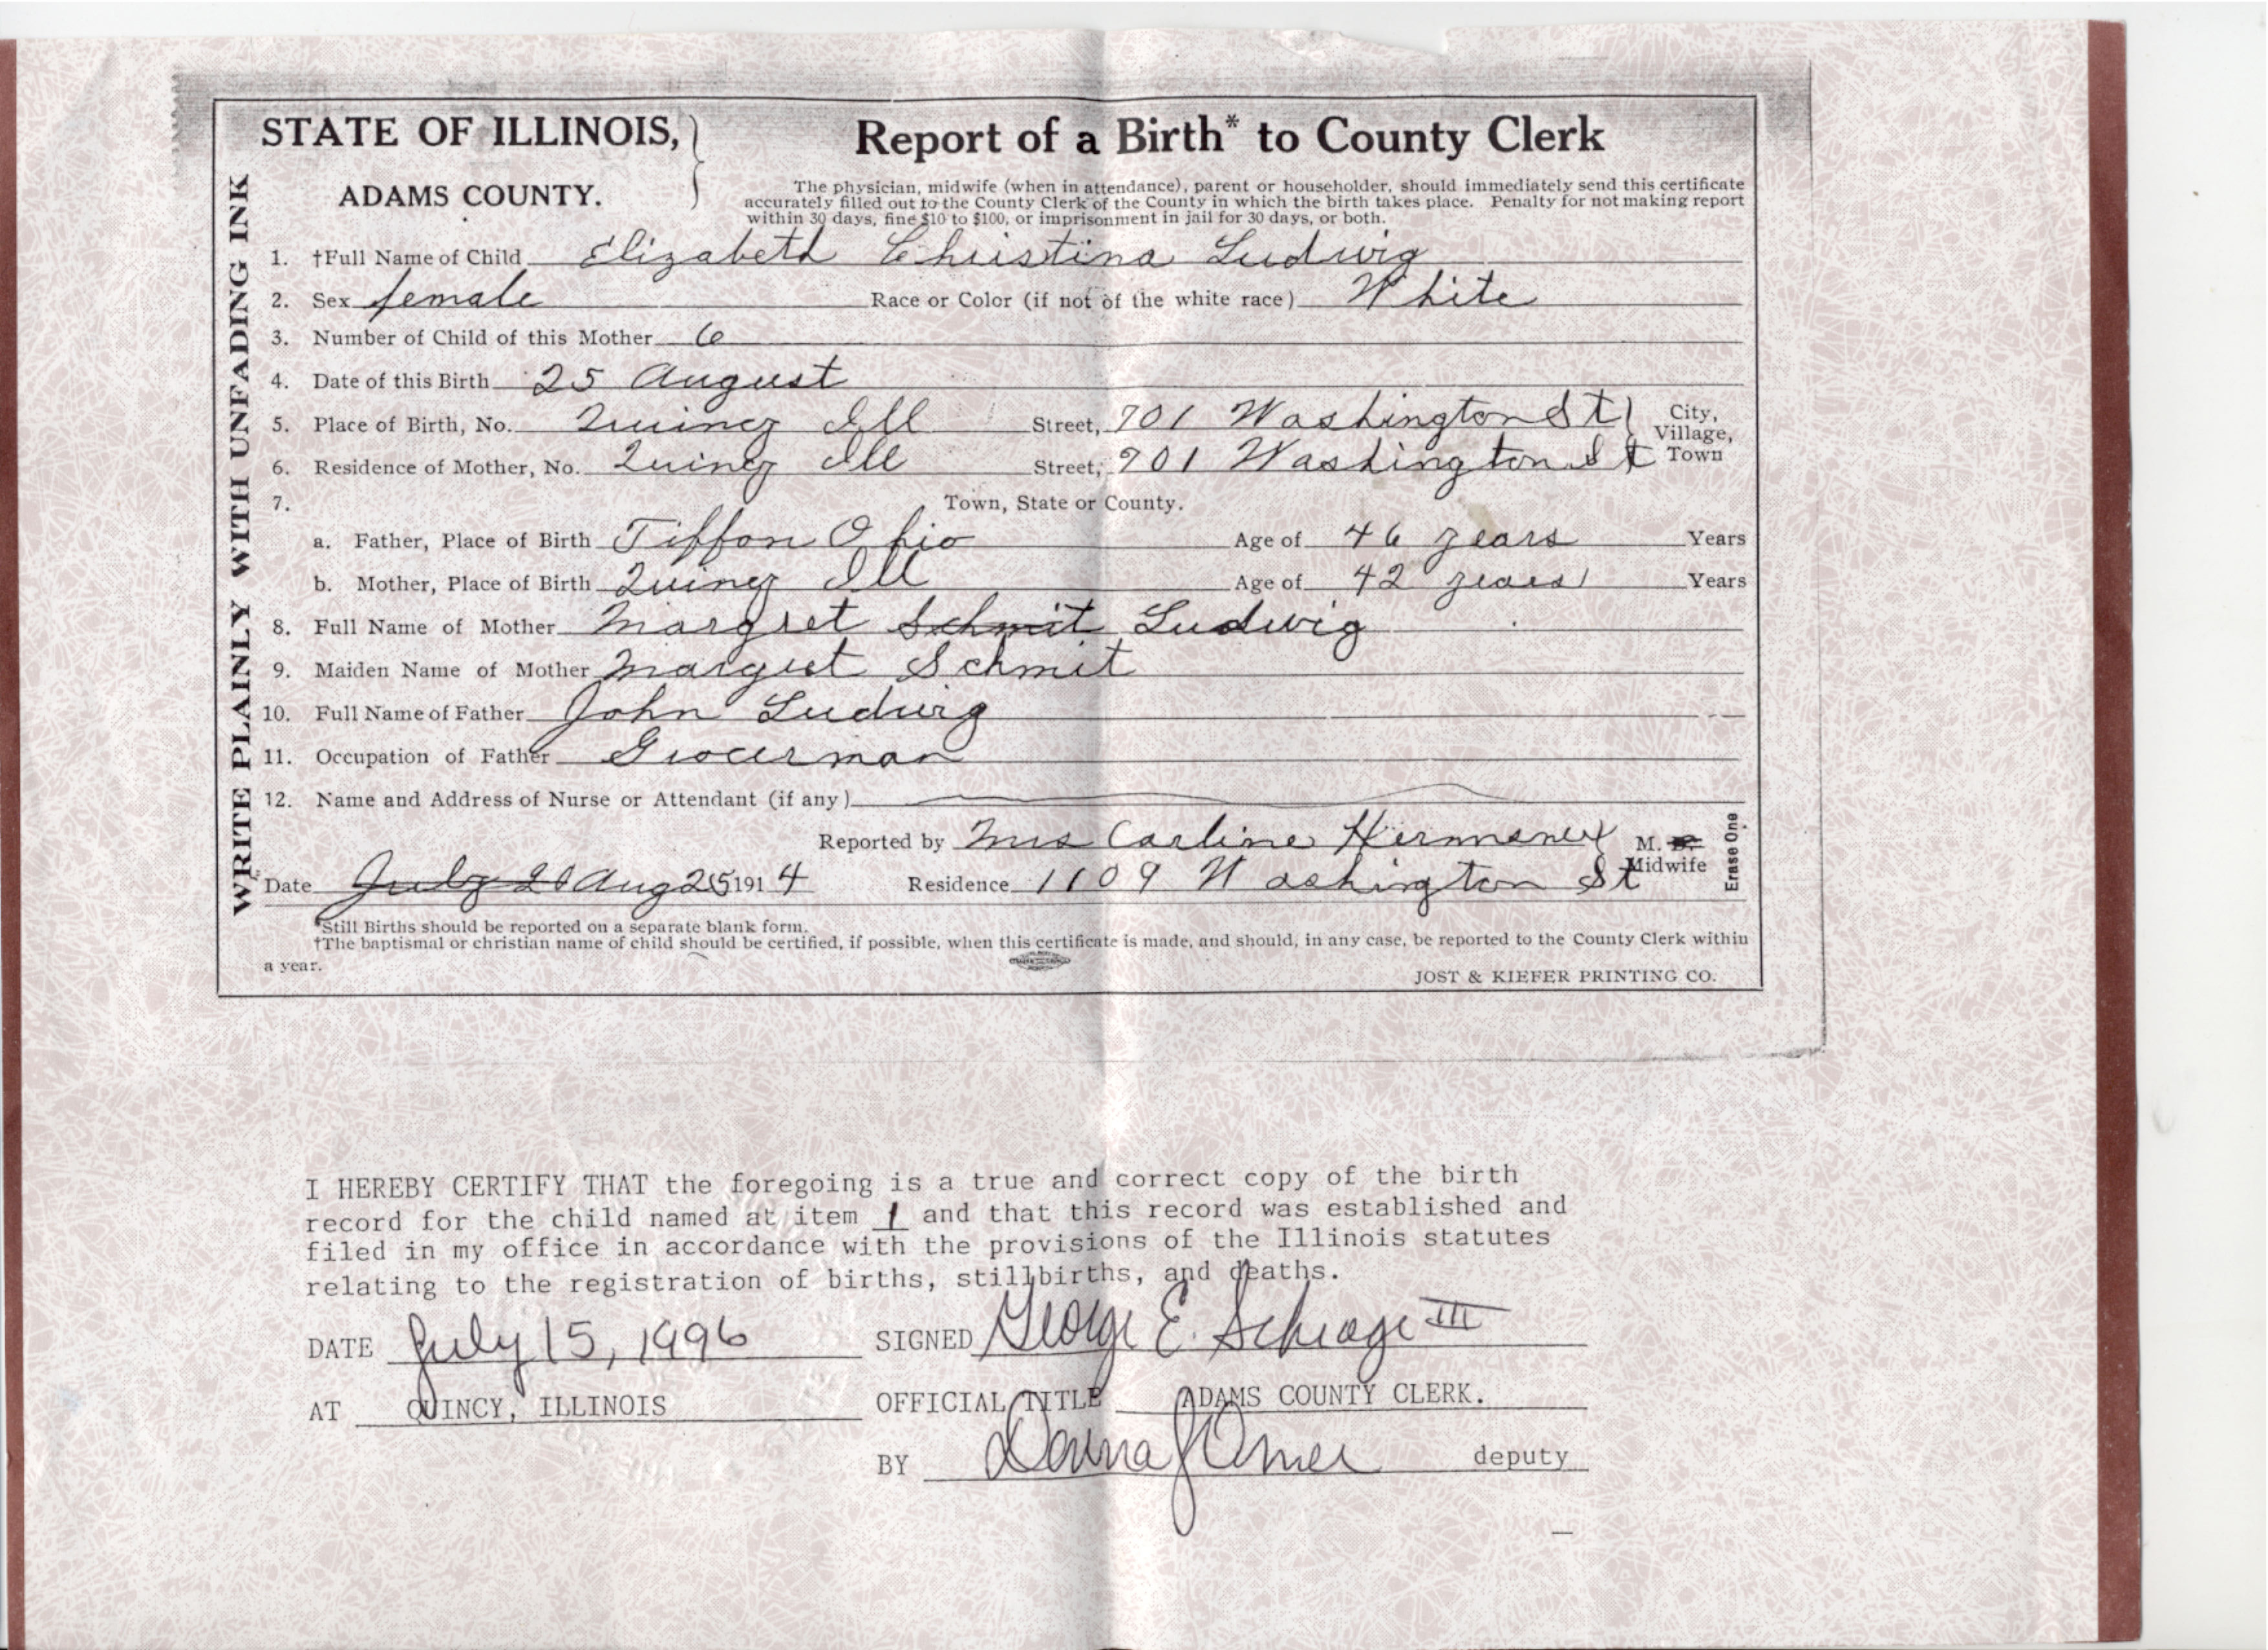 STATE OF ILLINOIS,
ADAMS COUNTY.
Report of a Birth* to County Clerk
The physician, midwife (when in attendance), parent or householder, should immediately send this certificate
accurately filled out to the County Clerk of the County in which the birth takes place. Penalty for not making report
within 30 days, fine $10 to $100, or imprisonment in jail for 30 days, or both.
WRITE PLAINLY WITH UNFADING INK
1. †Full Name of Child Elizabeth Christina Ludwig
2. Sex female Race or Color (if not of the white race) White
3. Number of Child of this Mother 6
4. Date of this Birth 25 August
5. Place of Birth, No. Quincy Ill Street, 701 Washington St City,
Village,
6. Residence of Mother, No. Quincy Ill Street, 901 Washington St Town
7. Town, State or County.
a. Father, Place of Birth Tiffon Ohio Age of 46 years Years
b. Mother, Place of Birth Quincy Ill Age of 42 years Years
8. Full Name of Mother Margret Schmit Ludwig
9. Maiden Name of Mother Margret Schmit
10. Full Name of Father John Ludwig
11. Occupation of Father Grocerman
12. Name and Address of Nurse or Attendant (if any)
Reported by Mrs Carline M. D.
Midwife
Erase One
Date July 20 Aug 25 1914 Residence 1109 Washington St
*Still Births should be reported on a separate blank form.
†The baptismal or christian name of child should be certified, if possible, when this certificate is made, and should, in any case, be reported to the County Clerk within
a year.
JOST & KIEFER PRINTING CO.
I HEREBY CERTIFY THAT the foregoing is a true and correct copy of the birth
record for the child named at item 1 and that this record was established and
filed in my office in accordance with the provisions of the Illinois statutes
relating to the registration of births, stillbirths, and deaths.
DATE July 15, 1996 SIGNED George E. Schrage III
AT QUINCY, ILLINOIS OFFICIAL TITLE ADAMS COUNTY CLERK.
BY Donna J Omer deputy